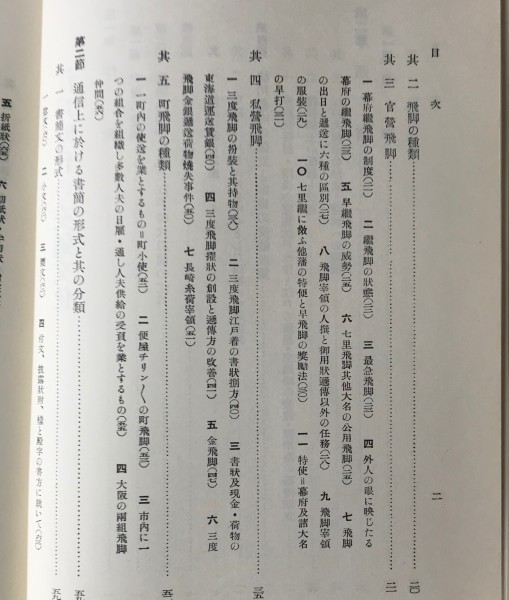 目次
二
其二 飛脚の種類……二〇
其三 官營飛脚……二一
一 幕府繼飛脚の制度(二一) 二 繼飛脚の狀態(三) 三 最急飛脚(三) 四 外人の眼に映じたる
幕府の繼飛脚(三) 五 早繼飛脚の威勢(二五) 六 七里飛脚其他大名の公用飛脚(二五) 七 飛脚
の出日と遞送に六種の區別(二七) 八 飛脚宰領の人撰と御用狀遞傳以外の任務(二八) 九 飛脚宰領
の服裝(二九) 一〇 七里繼に倣ふ他藩の特使と早飛脚の奬勵法(三〇) 一一 特使=幕府及諸大名
の早打(三二)
其四 私營飛脚……三五
一 三度飛脚の扮裝と其持物(三八) 二 三度飛脚江戸着の書狀捌方(四一) 三 書狀及現金・荷物の
東海道運送賃銀(四二) 四 三度飛脚擢狀の創設と遞傳方の改善(四二) 五 金飛脚(四七) 六 三度
飛脚金銀遞送荷物燒失事件(五〇) 七 長崎糸荷宰領(五一)
其五 町飛脚の種類……五
一 一町內の使送を業とするもの=町小使(五二) 二 便屋チリン〳〵の町飛脚(五三) 三 市內に一
つの組合を組織し多數人夫の日雇・通し人夫供給の受負を業とするもの(五五) 四 大阪の兩組飛脚
仲間(五六)
第二節 通信上に於ける書簡の形式と其の分類……五九
其一 書簡文の形式……五九
四 付天、披露狀附、樣と殿字の書方に就いて(六三)
五 折紙狀(六五)